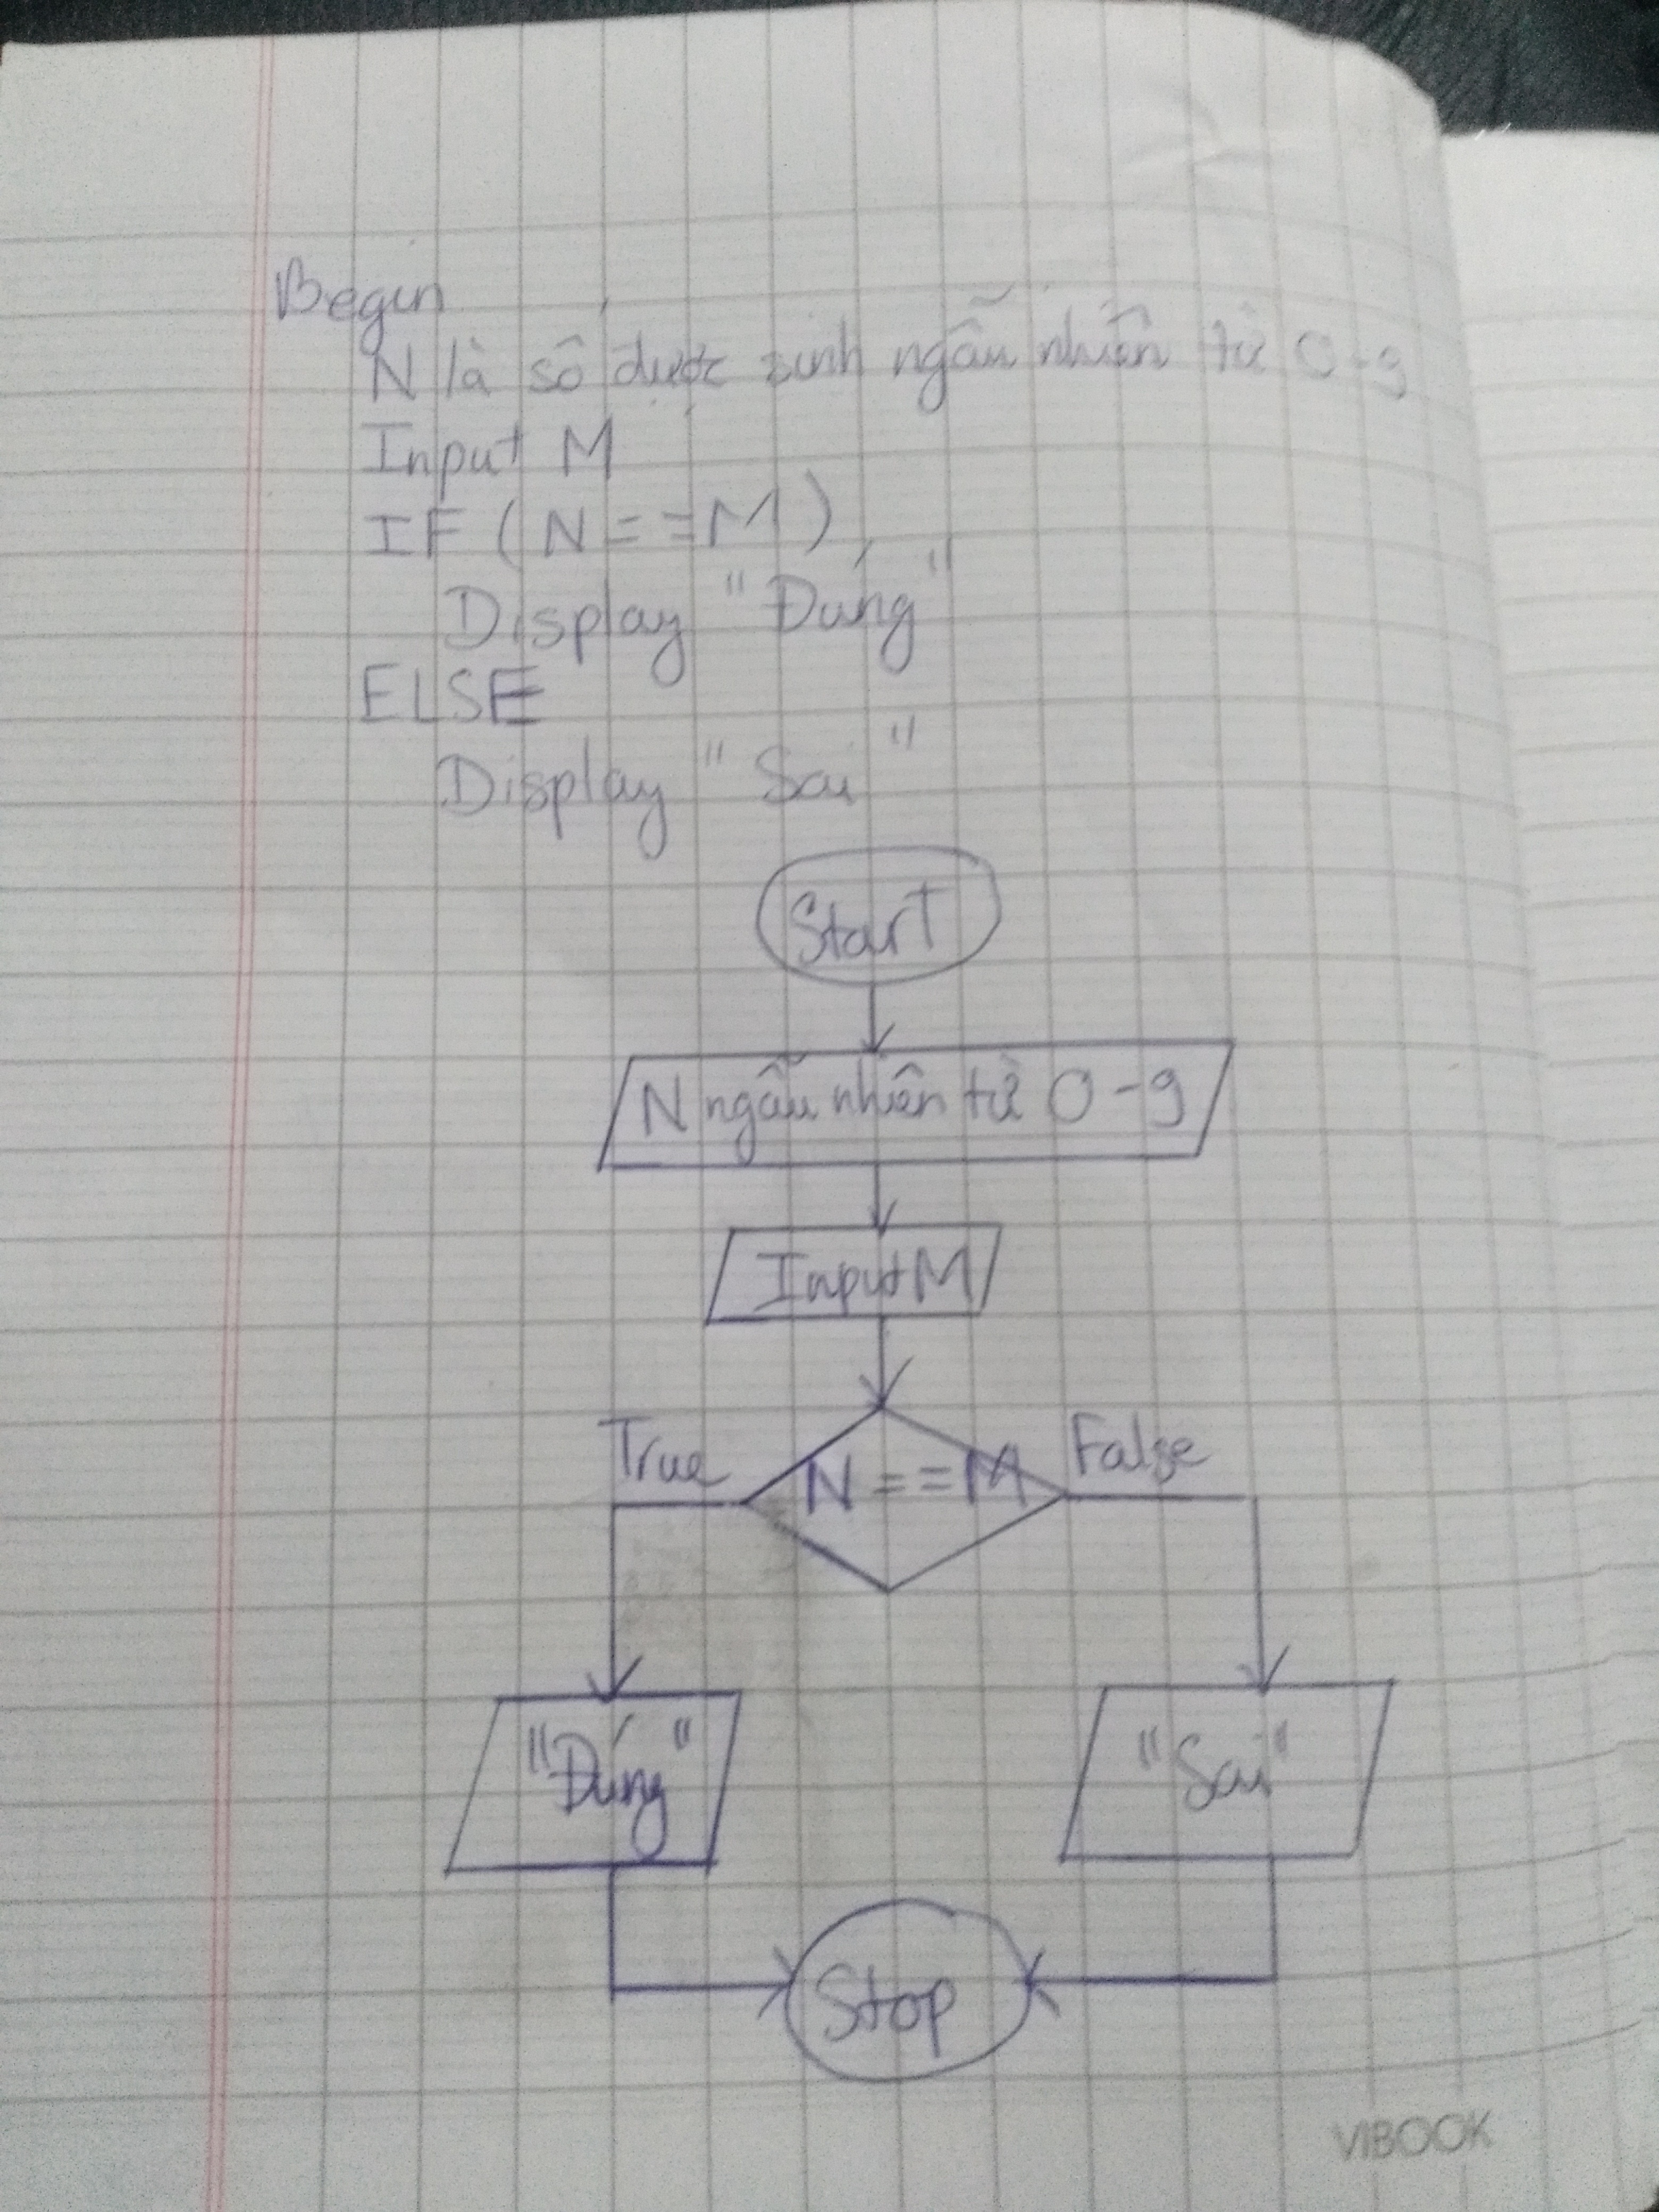 Begin
N là số được sinh ngẫu nhiên từ 0-9
Input M
IF ( N = = M )
Display "Đúng"
ELSE
Display "Sai"
Start
N ngẫu nhiên từ 0-9
Input M
True
N = = M
False
"Đúng"
"Sai"
Stop
VIBOOK